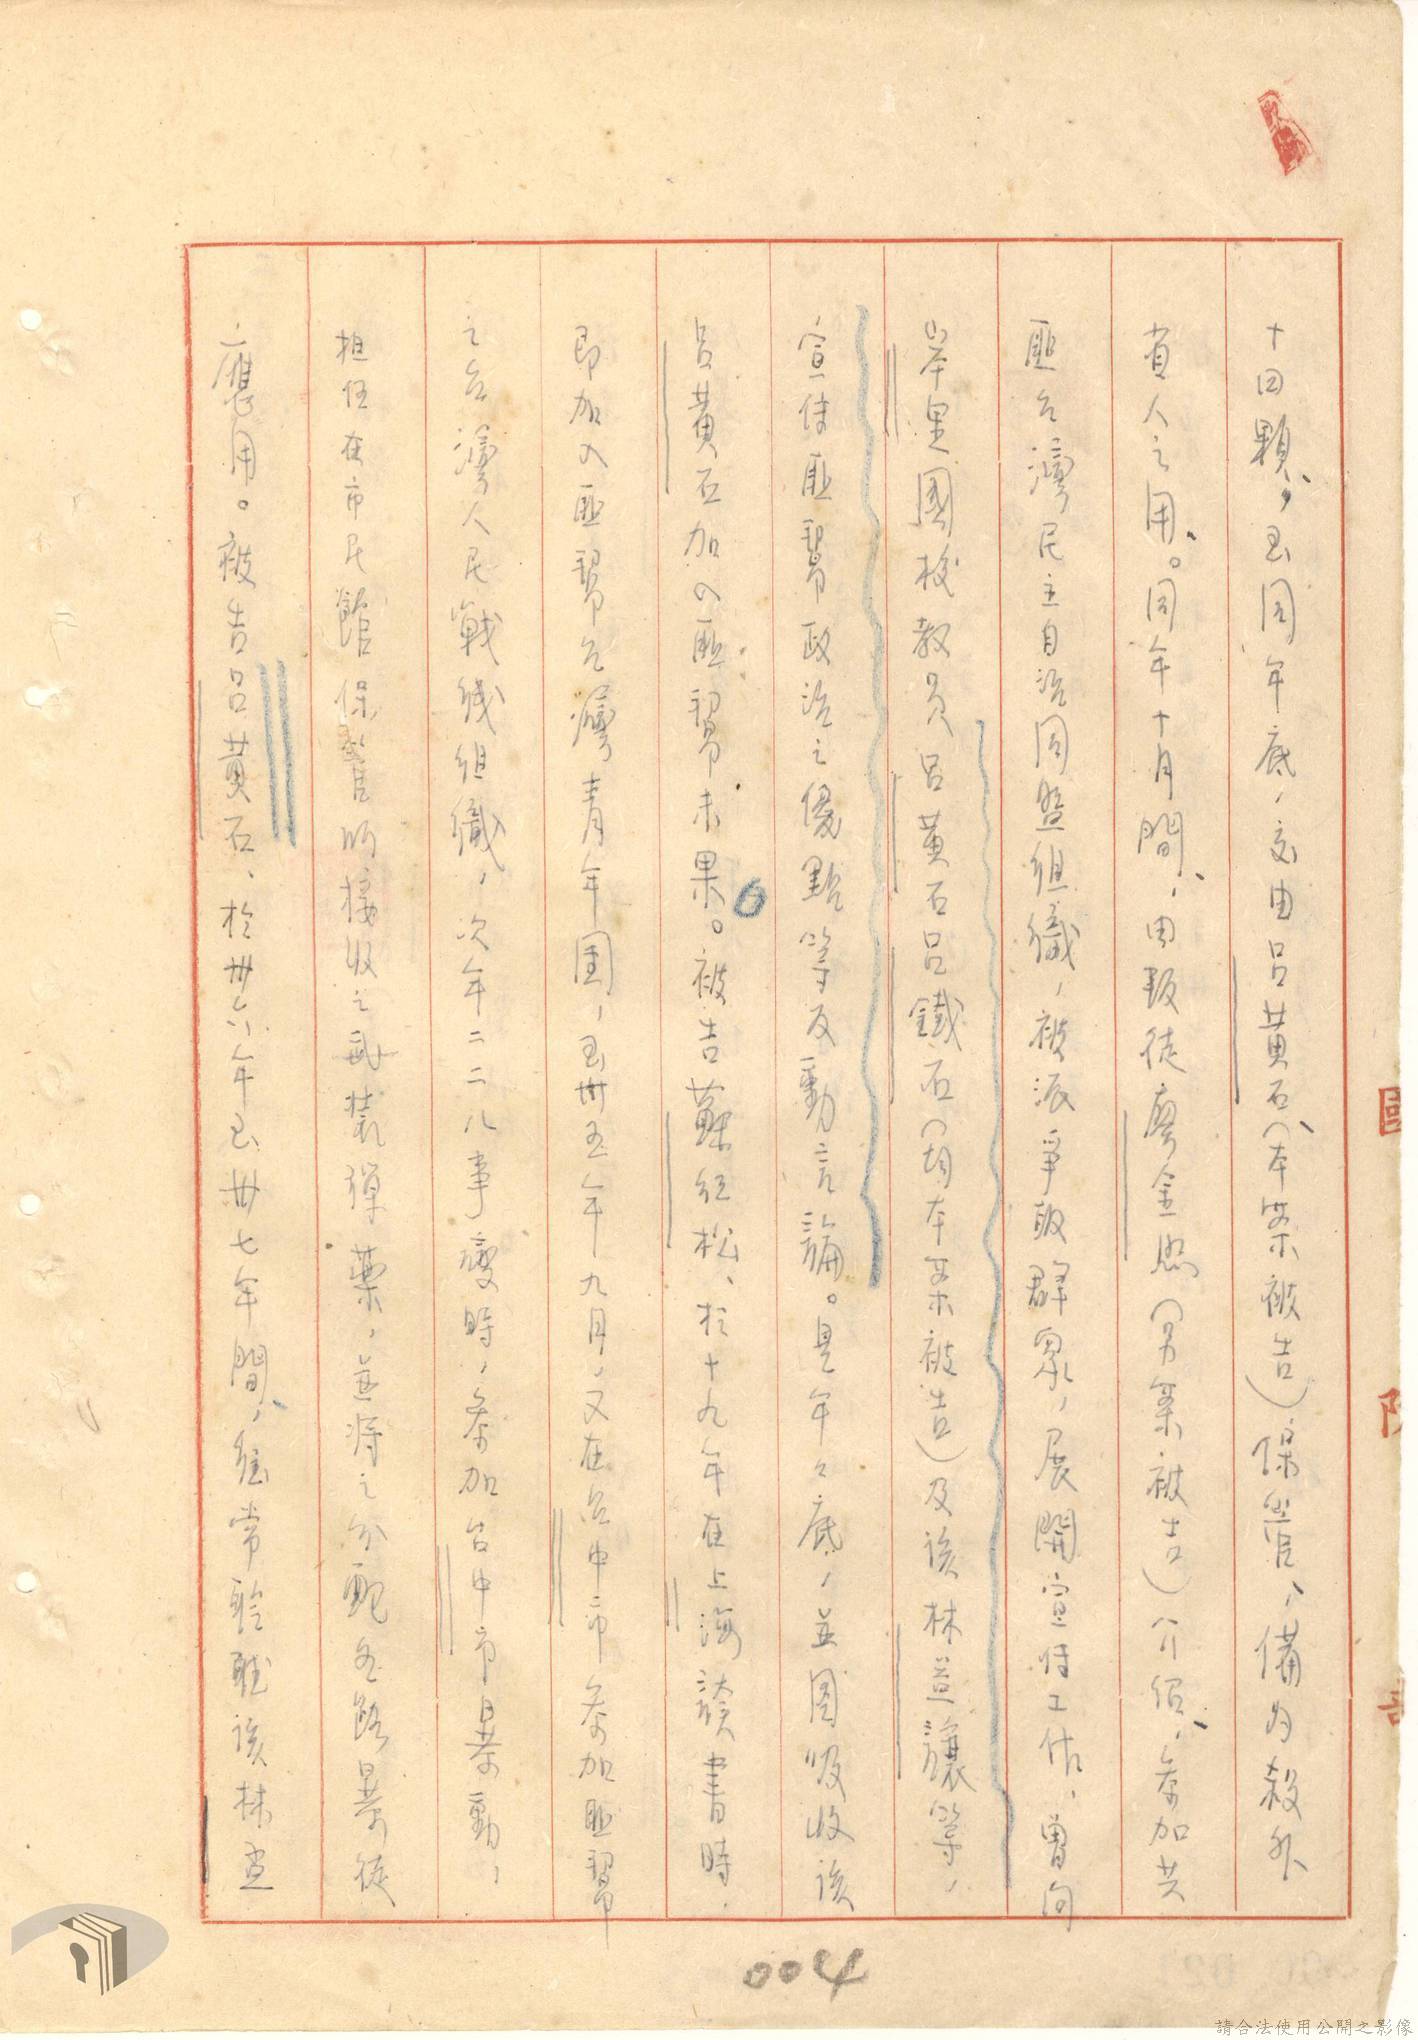 十四顆，至同年底，交由呂黃石（本案被告）保管，備為殺外
省人之用。同年十月間，由叛徒廖金照（另案被告）介紹，參加共
匪台灣民主自治同盟組織，被派爭取群眾，展開宣傳工作，曾向
岸里國校教員呂黃石呂鐵石（均本案被告）及該林益讓等，
宣傳匪幫政治之優點等反動言論。是年々底，並圖吸收該
呂黃石加入匪幫未果。被告蘇紅松、於十九年在上海讀書時，
即加入匪幫台灣青年團，至卅五年九月，又在台中市參加匪幫
之台灣人民戰綫組織，次年二二八事變時，參加台中市暴動，
担任在市民館保管所接收之武裝彈藥，並將之分配各路暴徒
應用。被告呂黃石、於卅六年至卅七年間，經常聆聽該林益
國 防
0024
請合法使用公開之影像